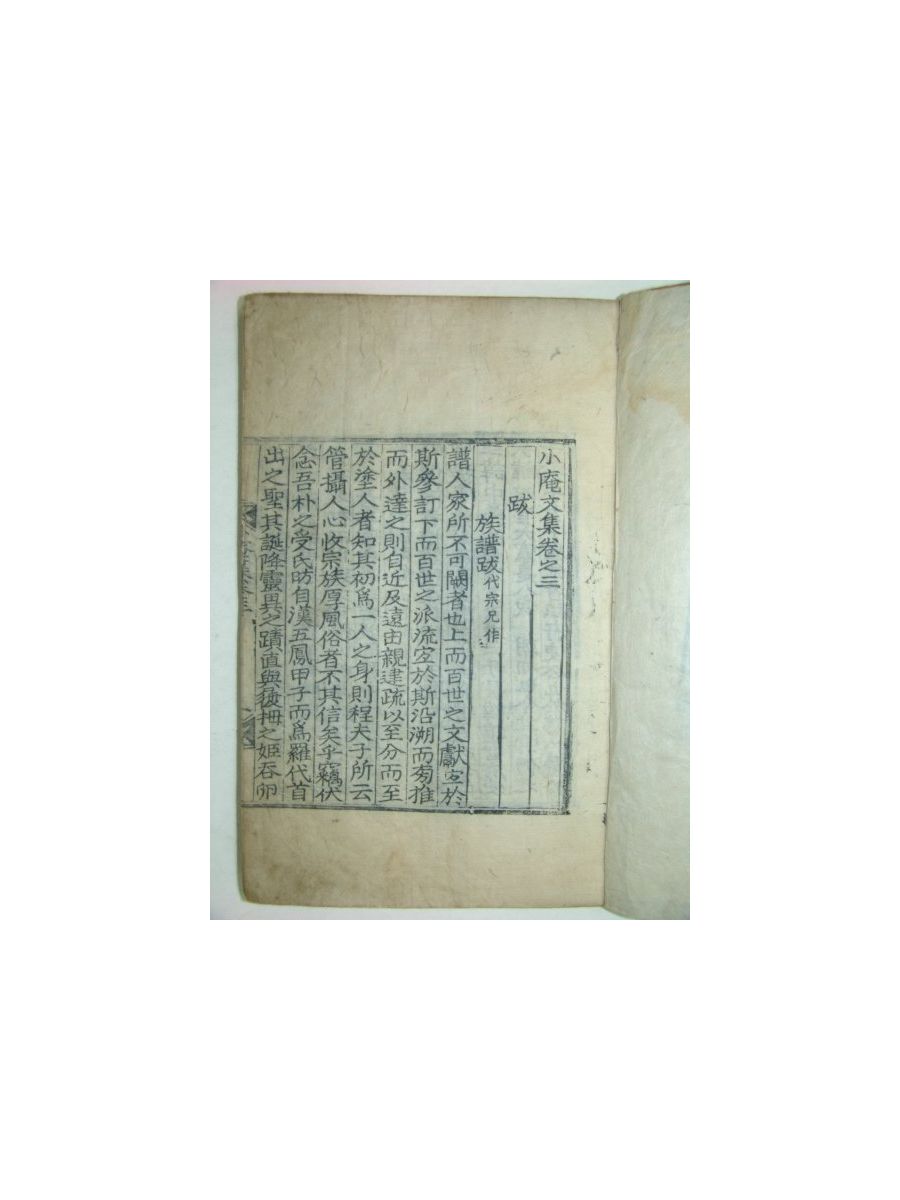 小庵文集卷之三
跋
族譜跋代宗兄作
譜人家所不可闕者也上而百世之文獻寔於
斯參訂下而百世之派流寔於斯沿溯而旁推
而外達之則自近及遠由親逮疏以至分而至
於塗人者知其初爲一人之身則程夫子所云
管攝人心收宗族厚風俗者不其信矣乎竊伏
念吾朴之受氏昉自漢五鳳甲子而爲羅代首
出之聖其誕降靈異之蹟直與履拇之姬吞卵